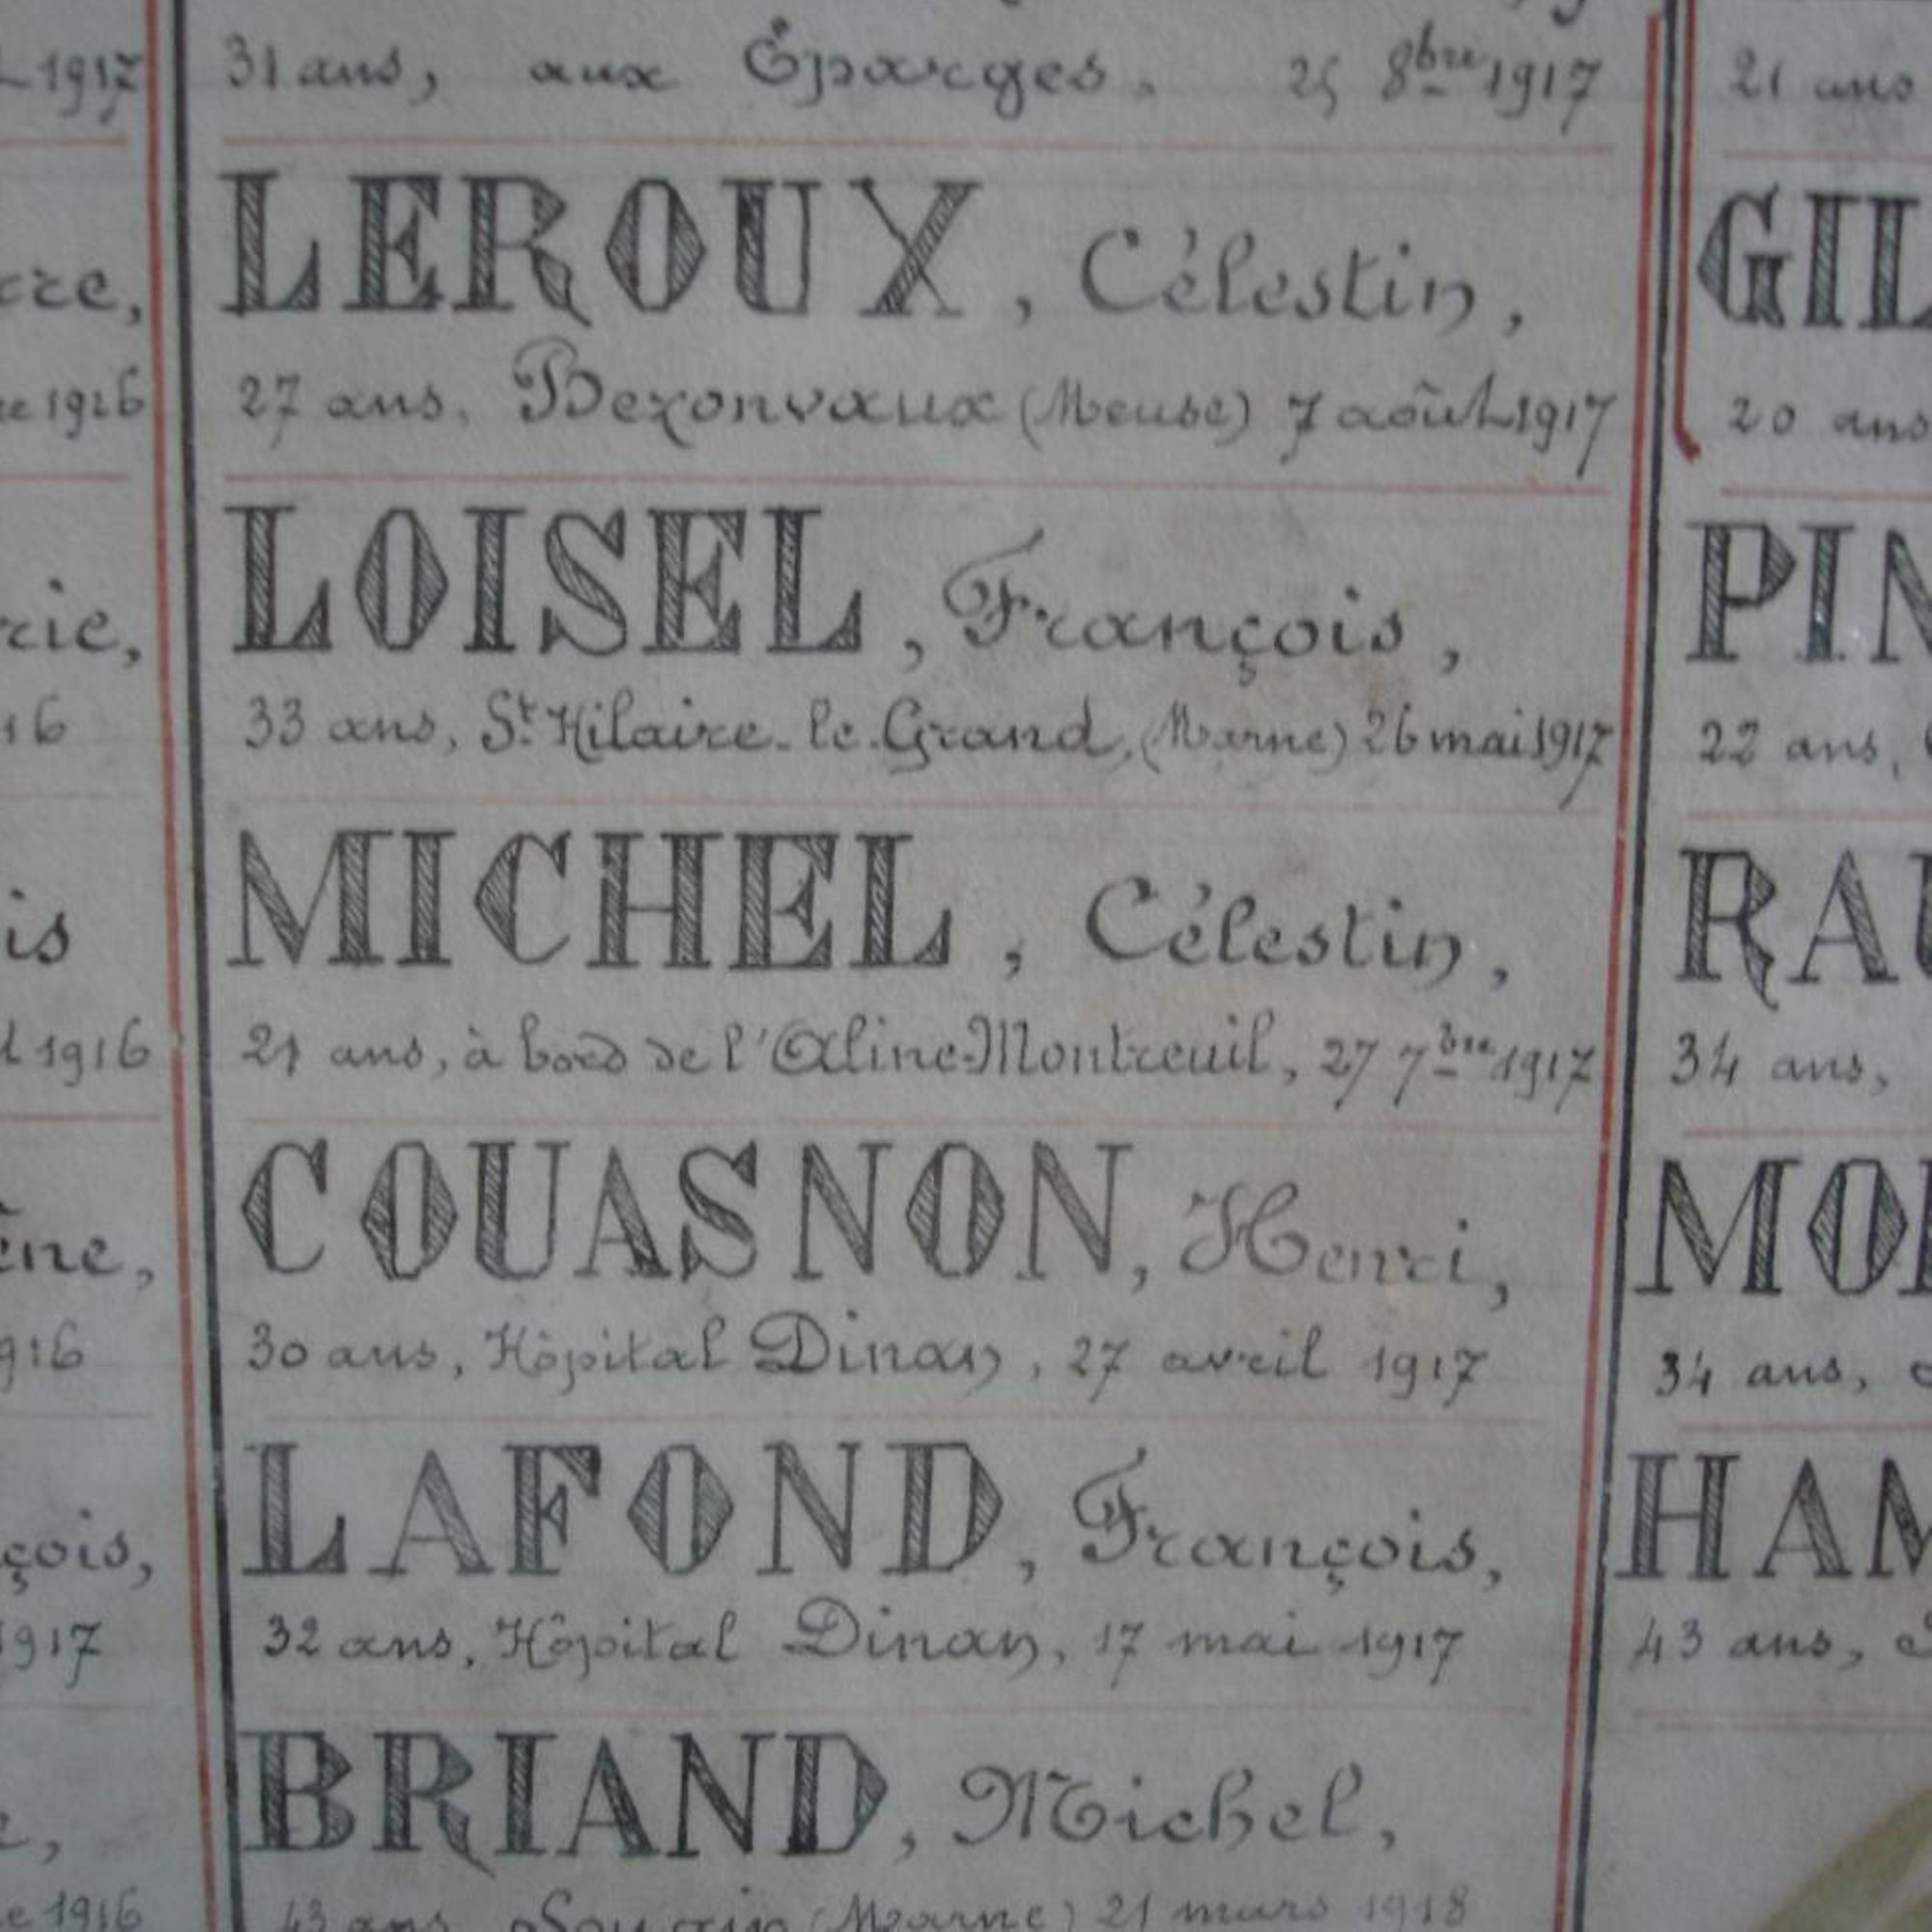 L 1917
cre,
re 1916
rie,
16
is
l 1916
ène,
916
çois,
1917
e,
e 1916
31 ans, aux Éparges. 25 8bre 1917
LEROUX, Célestin,
27 ans, Bezonvaux (Meuse) 7 août 1917
LOISEL, François,
33 ans, St Hilaire-le-Grand, (Marne) 26 mai 1917
MICHEL, Célestin,
21 ans, à bord de l'Aline-Montreuil, 27 7bre 1917
COUASNON, Henri,
30 ans, Hôpital Dinan, 27 avril 1917
LAFOND, François,
32 ans, Hôpital Dinan, 17 mai 1917
BRIAND, Michel,
43 ans, Souain (Marne) 21 mars 1918
21 ans
GIL
20 ans
PIN
22 ans,
RAU
34 ans,
MOR
34 ans,
HAM
43 ans,